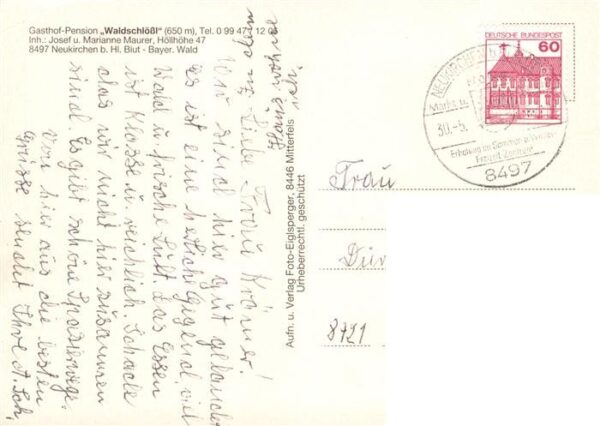 Gasthof-Pension „Waldschlößl" (650 m), Tel. 0 99 47 / 12 0
Inh.: Josef u. Marianne Maurer, Höllhöhe 47
8497 Neukirchen b. Hl. Blut - Bayer. Wald
Liebe Frau Krämer!
Wir sind hier gut gelandet
es ist eine herliche Gegend, viel
Wald u. frische Luft. Das Essen
ist Klasse u. reichlich. Schade
das wir nicht hier zusammen
sind. Es gibt schöne Spazierwege.
Von hier aus die besten
Grüsse sendet Ihre A. Loh,
Aufn. u. Verlag Foto-Eiglsperger, 8446 Mitterfels
Urheberrechtl. geschützt
DEUTSCHE BUNDESPOST
60
30.-5.
Erholung im Sommer u. Winter
Freizeit Zentrum
8497
Frau
8421